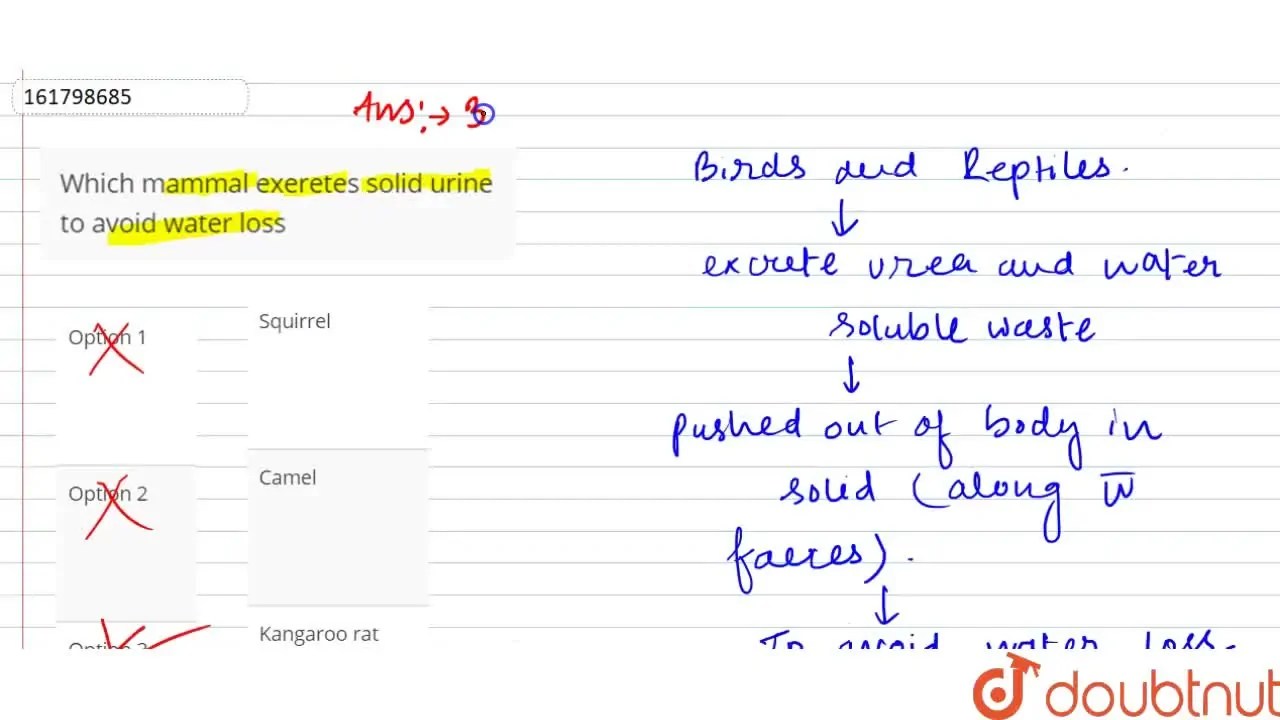 161798685
Ans:→ 3
Which mammal exeretes solid urine
to avoid water loss
Option 1
Squirrel
Option 2
Camel
Option 3
Kangaroo rat
Birds and Reptiles.
↓
excrete urea and water
soluble waste
↓
pushed out of body in
solid (along w̅
faeces).
↓
To avoid water loss.
doubtnut